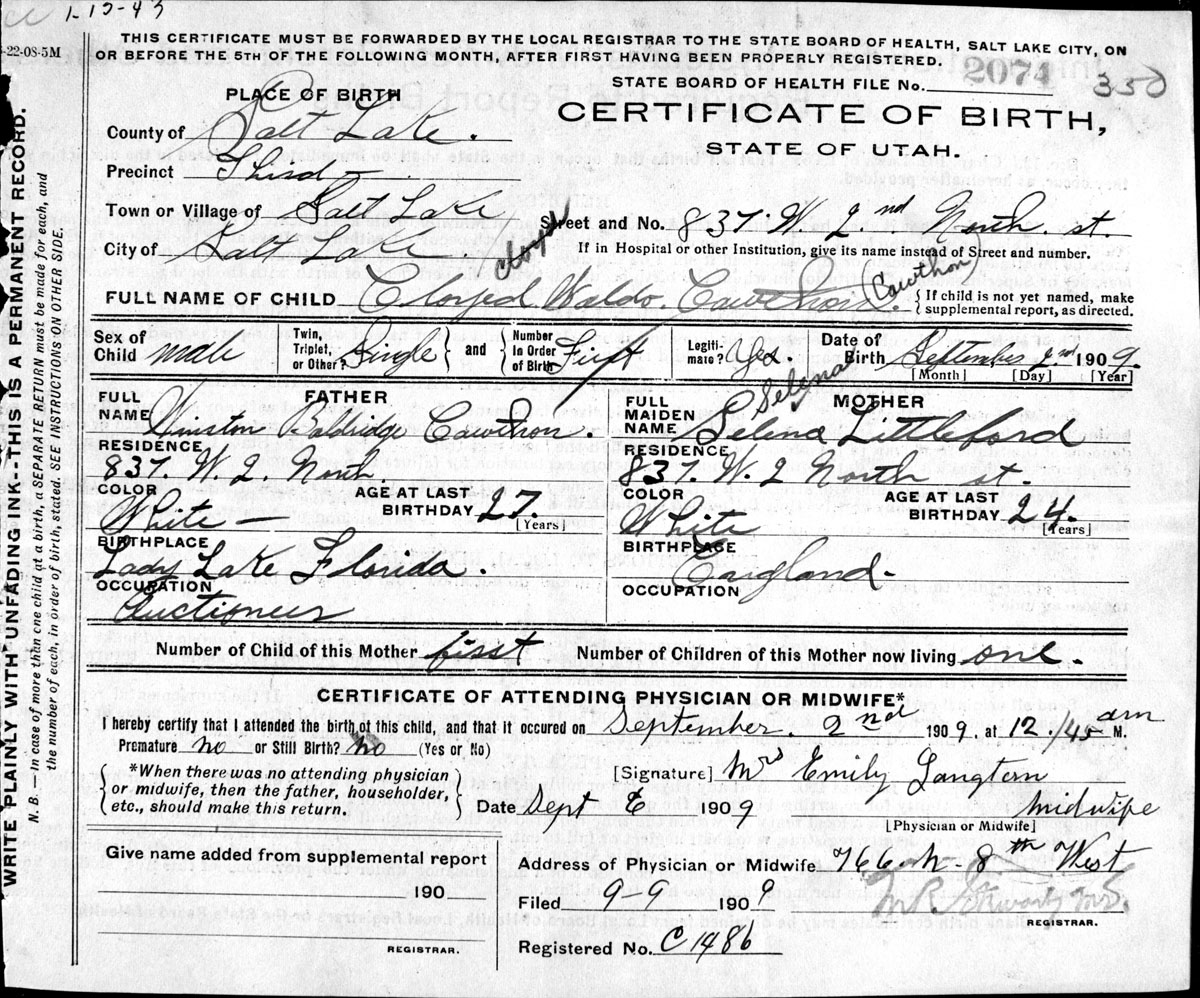 1-15-43
-22-08-5M
THIS CERTIFICATE MUST BE FORWARDED BY THE LOCAL REGISTRAR TO THE STATE BOARD OF HEALTH, SALT LAKE CITY, ON
OR BEFORE THE 5TH OF THE FOLLOWING MONTH, AFTER FIRST HAVING BEEN PROPERLY REGISTERED.
STATE BOARD OF HEALTH FILE No. 2074 350
PLACE OF BIRTH
CERTIFICATE OF BIRTH,
STATE OF UTAH.
County of Salt Lake.
Precinct Third
Town or Village of Salt Lake
Street and No. 837. W. 2nd North. st.
City of Salt Lake.
If in Hospital or other Institution, give its name instead of Street and number.
Cawthon
FULL NAME OF CHILD Cloyed Waldo. Cawthon.
{ If child is not yet named, make
supplemental report, as directed.
Sex of Child male
Twin, Triplet, or Other? Single } and { Number In Order of Birth First
Legitimate? Yes.
Date of Birth September 2nd 1909.
[Month] [Day] [Year]
FATHER
FULL NAME Winston Baldridge Cawthon.
RESIDENCE
837. W. 2. North.
COLOR
White —
AGE AT LAST BIRTHDAY 27.
[Years]
BIRTHPLACE
Lady Lake Florida.
OCCUPATION
Auctioneer
MOTHER
Selena
FULL MAIDEN NAME Selina Littleford
RESIDENCE
837. W. 2 North st.
COLOR
White
AGE AT LAST BIRTHDAY 24.
[Years]
BIRTHPLACE
England.
OCCUPATION
Number of Child of this Mother first Number of Children of this Mother now living one.
CERTIFICATE OF ATTENDING PHYSICIAN OR MIDWIFE*
I hereby certify that I attended the birth of this child, and that it occured on September. 2nd 1909, at 12./45 am M.
Premature no or Still Birth? no (Yes or No)
{ *When there was no attending physician
or midwife, then the father, householder,
etc., should make this return. }
[Signature] Mrs Emily Langtern
Date Sept 6 1909
Midwife
[Physician or Midwife]
Give name added from supplemental report
190
REGISTRAR.
Address of Physician or Midwife 766 N. 8th West
Filed 9-9 1909
REGISTRAR.
Registered No. C1486
WRITE PLAINLY WITH UNFADING INK--THIS IS A PERMANENT RECORD.
N. B.—In case of more than one child at a birth, a SEPARATE RETURN must be made for each, and
the number of each, in order of birth, stated. SEE INSTRUCTIONS ON OTHER SIDE.